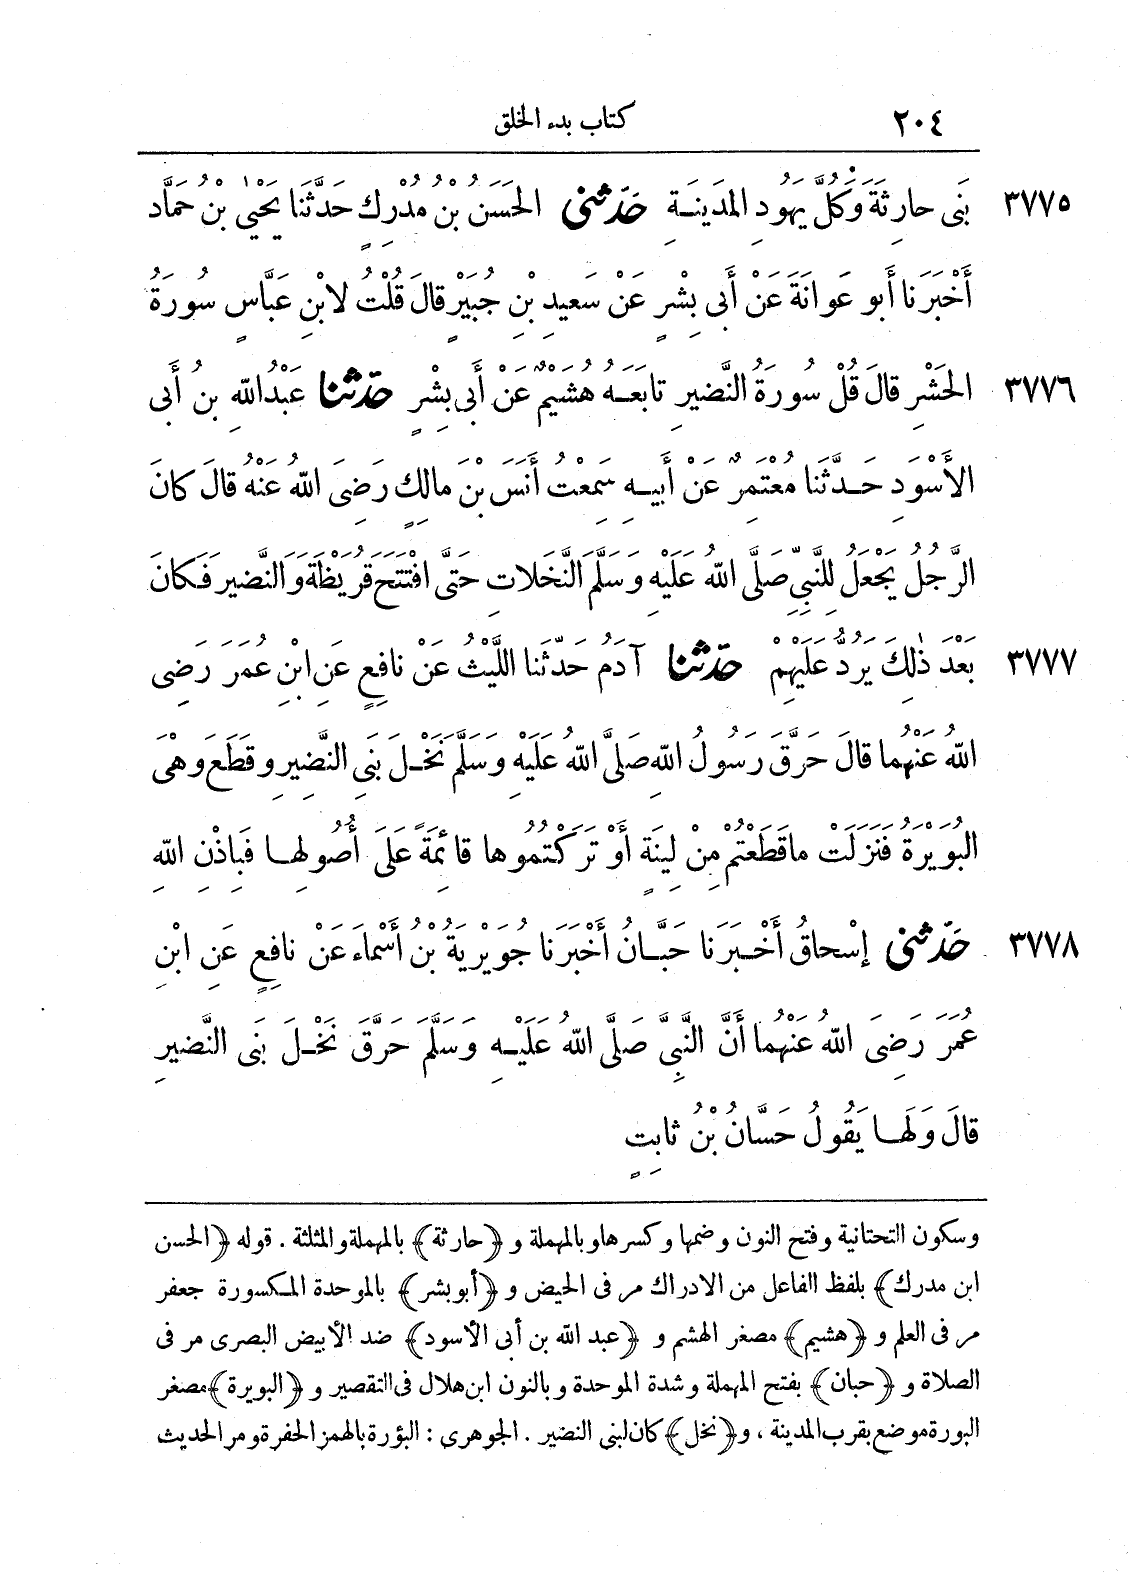 ٢٠٤ كتاب بدء الخلق
٣٧٧٥ بَنِى حارِثَةَ وَكُلَّ يَهُودِ المَدِينَـةِ حَدّثنى الحَسَنُ بنُ مُدْرِكٍ حَدَّثَنا يَحْيٰى بْنُ حَمَّادٍ
أَخْبَرَنا أَبو عَوانَةَ عَنْ أَبى بِشْرٍ عَنْ سَعِيدِ بْنِ جُبَيْرٍ قالَ قُلْتُ لابنِ عَبَّاسٍ سُورَةُ
٣٧٧٦ الحَشْرِ قالَ قُلْ سُورَةُ النَّضِيرِ تابَعَـهُ هُشَيْمٌ عَنْ أَبى بِشْرٍ حَدّثنا عَبْدُ اللّٰهِ بنُ أَبى
الأَسْوَدِ حَـدَّثَنا مُعْتَمِرٌ عَنْ أَبِيـهِ سَمِعْتُ أَنَسَ بْنَ مالِكٍ رَضِىَ اللّٰهُ عَنْهُ قالَ كانَ
الرَّجُلُ يَجْعَلُ لِلنَّبِىِّ صَلَّى اللّٰهُ عَلَيْهِ وَسَلَّمَ النَّخَلاتِ حَتَّى افْتَتَحَ قُرَيْظَةَ وَالنَّضِيرَ فَكانَ
٣٧٧٧ بَعْدَ ذٰلِكَ يَرُدُّ عَلَيْهِمْ حَدّثنا آدَمُ حَدّثَنا اللَّيْثُ عَنْ نافِعٍ عَنِ ابْنِ عُمَرَ رَضِىَ
اللّٰهُ عَنْهُما قالَ حَرَّقَ رَسُولُ اللّٰهِ صَلَّى اللّٰهُ عَلَيْهِ وَسَلَّمَ نَخْـلَ بَنِى النَّضِيرِ وقَطَعَ وَهْىَ
البُوَيْرَةُ فَنَزَلَتْ ما قَطَعْتُمْ مِنْ لِينَةٍ أَوْ تَرَكْتُمُوها قائِمَةً عَلَى أُصُولِهـا فَبِاذْنِ اللّٰهِ
٣٧٧٨ حَدّثنى إسْحاقُ أَخْـبَرَنا حَبَّـانُ أَخْبَرَنا جُوَيْرِيَةُ بْنُ أَسْماءَ عَنْ نافِعٍ عَنِ ابْنِ
عُمَرَ رَضِىَ اللّٰهُ عَنْهُما أَنَّ النَّبِىَّ صَلَّى اللّٰهُ عَلَيْـهِ وَسَلَّمَ حَرَّقَ نَخْـلَ بَنِى النَّضِيرِ
قالَ وَلَهـا يَقُولُ حَسَّانُ بْنُ ثابِتٍ
وسكون التحتانية وفتح النون وضمها وكسرها وبالمهملة و ﴿حارثة﴾ بالمهملة والمثلثة . قوله ﴿الحسن
ابن مدرك﴾ بلفظ الفاعل من الادراك مر فى الحيض و ﴿أبو بشر﴾ بالموحدة المكسورة جعفر
مر فى العلم و ﴿هشيم﴾ مصغر الهشم و ﴿عبد الله بن أبى الأسود﴾ ضد الأبيض البصرى مر فى
الصلاة و ﴿حبان﴾ بفتح المهملة وشدة الموحدة وبالنون ابن هلال فى التقصير و ﴿البويرة﴾ مصغر
البورة موضع بقرب المدينة ، و﴿نخل﴾ كان لبنى النضير . الجوهرى : البؤرة بالهمز الحفرة ومر الحديث